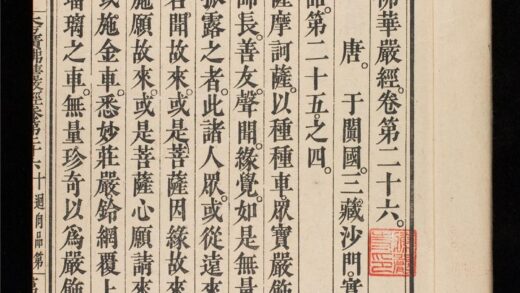 佛華嚴經。卷第二十六。
唐。于闐國。三藏沙門。實
品。第二十五。之四。
薩摩訶薩。以種種車。眾寶嚴飾
師長。善友。聲聞。緣覺。如是無量
孤露之者。此諸人眾。或從遠來
名聞故來。或是菩薩因緣故來
施願故來。或是菩薩心願請來
或施金車。悉妙莊嚴。鈴網覆上
瑠璃之車。無量珍奇以為嚴飾
華嚴經卷第二十六 十迴向品第